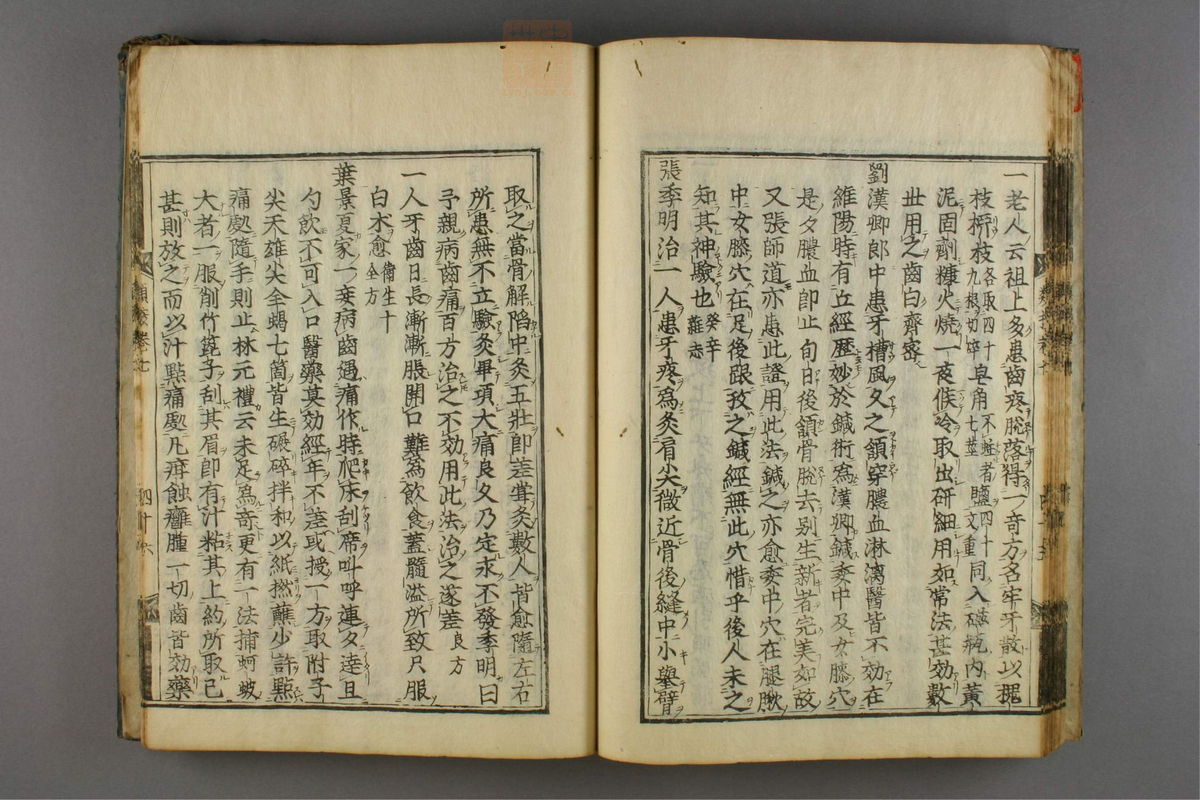 一老人云祖上多患齒疼脫落得一奇方名牢牙散以槐
枝柳枝各取四十九根切碎皂角不蛀者七莖鹽四十文重同入磁瓶內黃
泥固劑糠火燒一夜候冷取出研細用如常法甚効數
世用之齒白齊密
劉漢卿郎中患牙槽風久之頷穿膿血淋漓醫皆不効在
維陽時有丘經歷妙於鍼術爲漢卿鍼委中及女膝穴
是夕膿血即止旬日後頷骨脫去別生新者完美如故
又張師道亦患此證用此法鍼之亦愈委中穴在腿䐐
中女膝穴在足後跟孜之鍼經無此穴惜乎後人未之
知其神驗也癸辛雜志
張季明治一人患牙疼爲灸肩尖微近骨後縫中小舉臂
取之當骨解陷中灸五壯即差甞灸數人皆愈隨左右
所患無不立驗灸畢項大痛良久乃定永不發季明曰
予親病齒痛百方治之不効用此法治之遂差良方
一人牙齒日長漸漸脹開口難爲飲食蓋髓溢所致只服
白朮愈衞生十全方
葉景夏家一妾病齒遇痛作時爬床刮席叫呼連夕達旦
勺飲不可入口醫藥莫効經年不差或授一方取附子
尖天雄尖全蝎七箇皆生碾碎拌和以紙撚蘸少許點
痛處隨手則止林元禮云未足爲奇更有一法捕蚵蚾
大者一服削竹篦子刮其眉即有汁粘其上約所取已
甚則放之而以汁點痛處凡疳蝕癰腫一切齒皆効藥
四十六